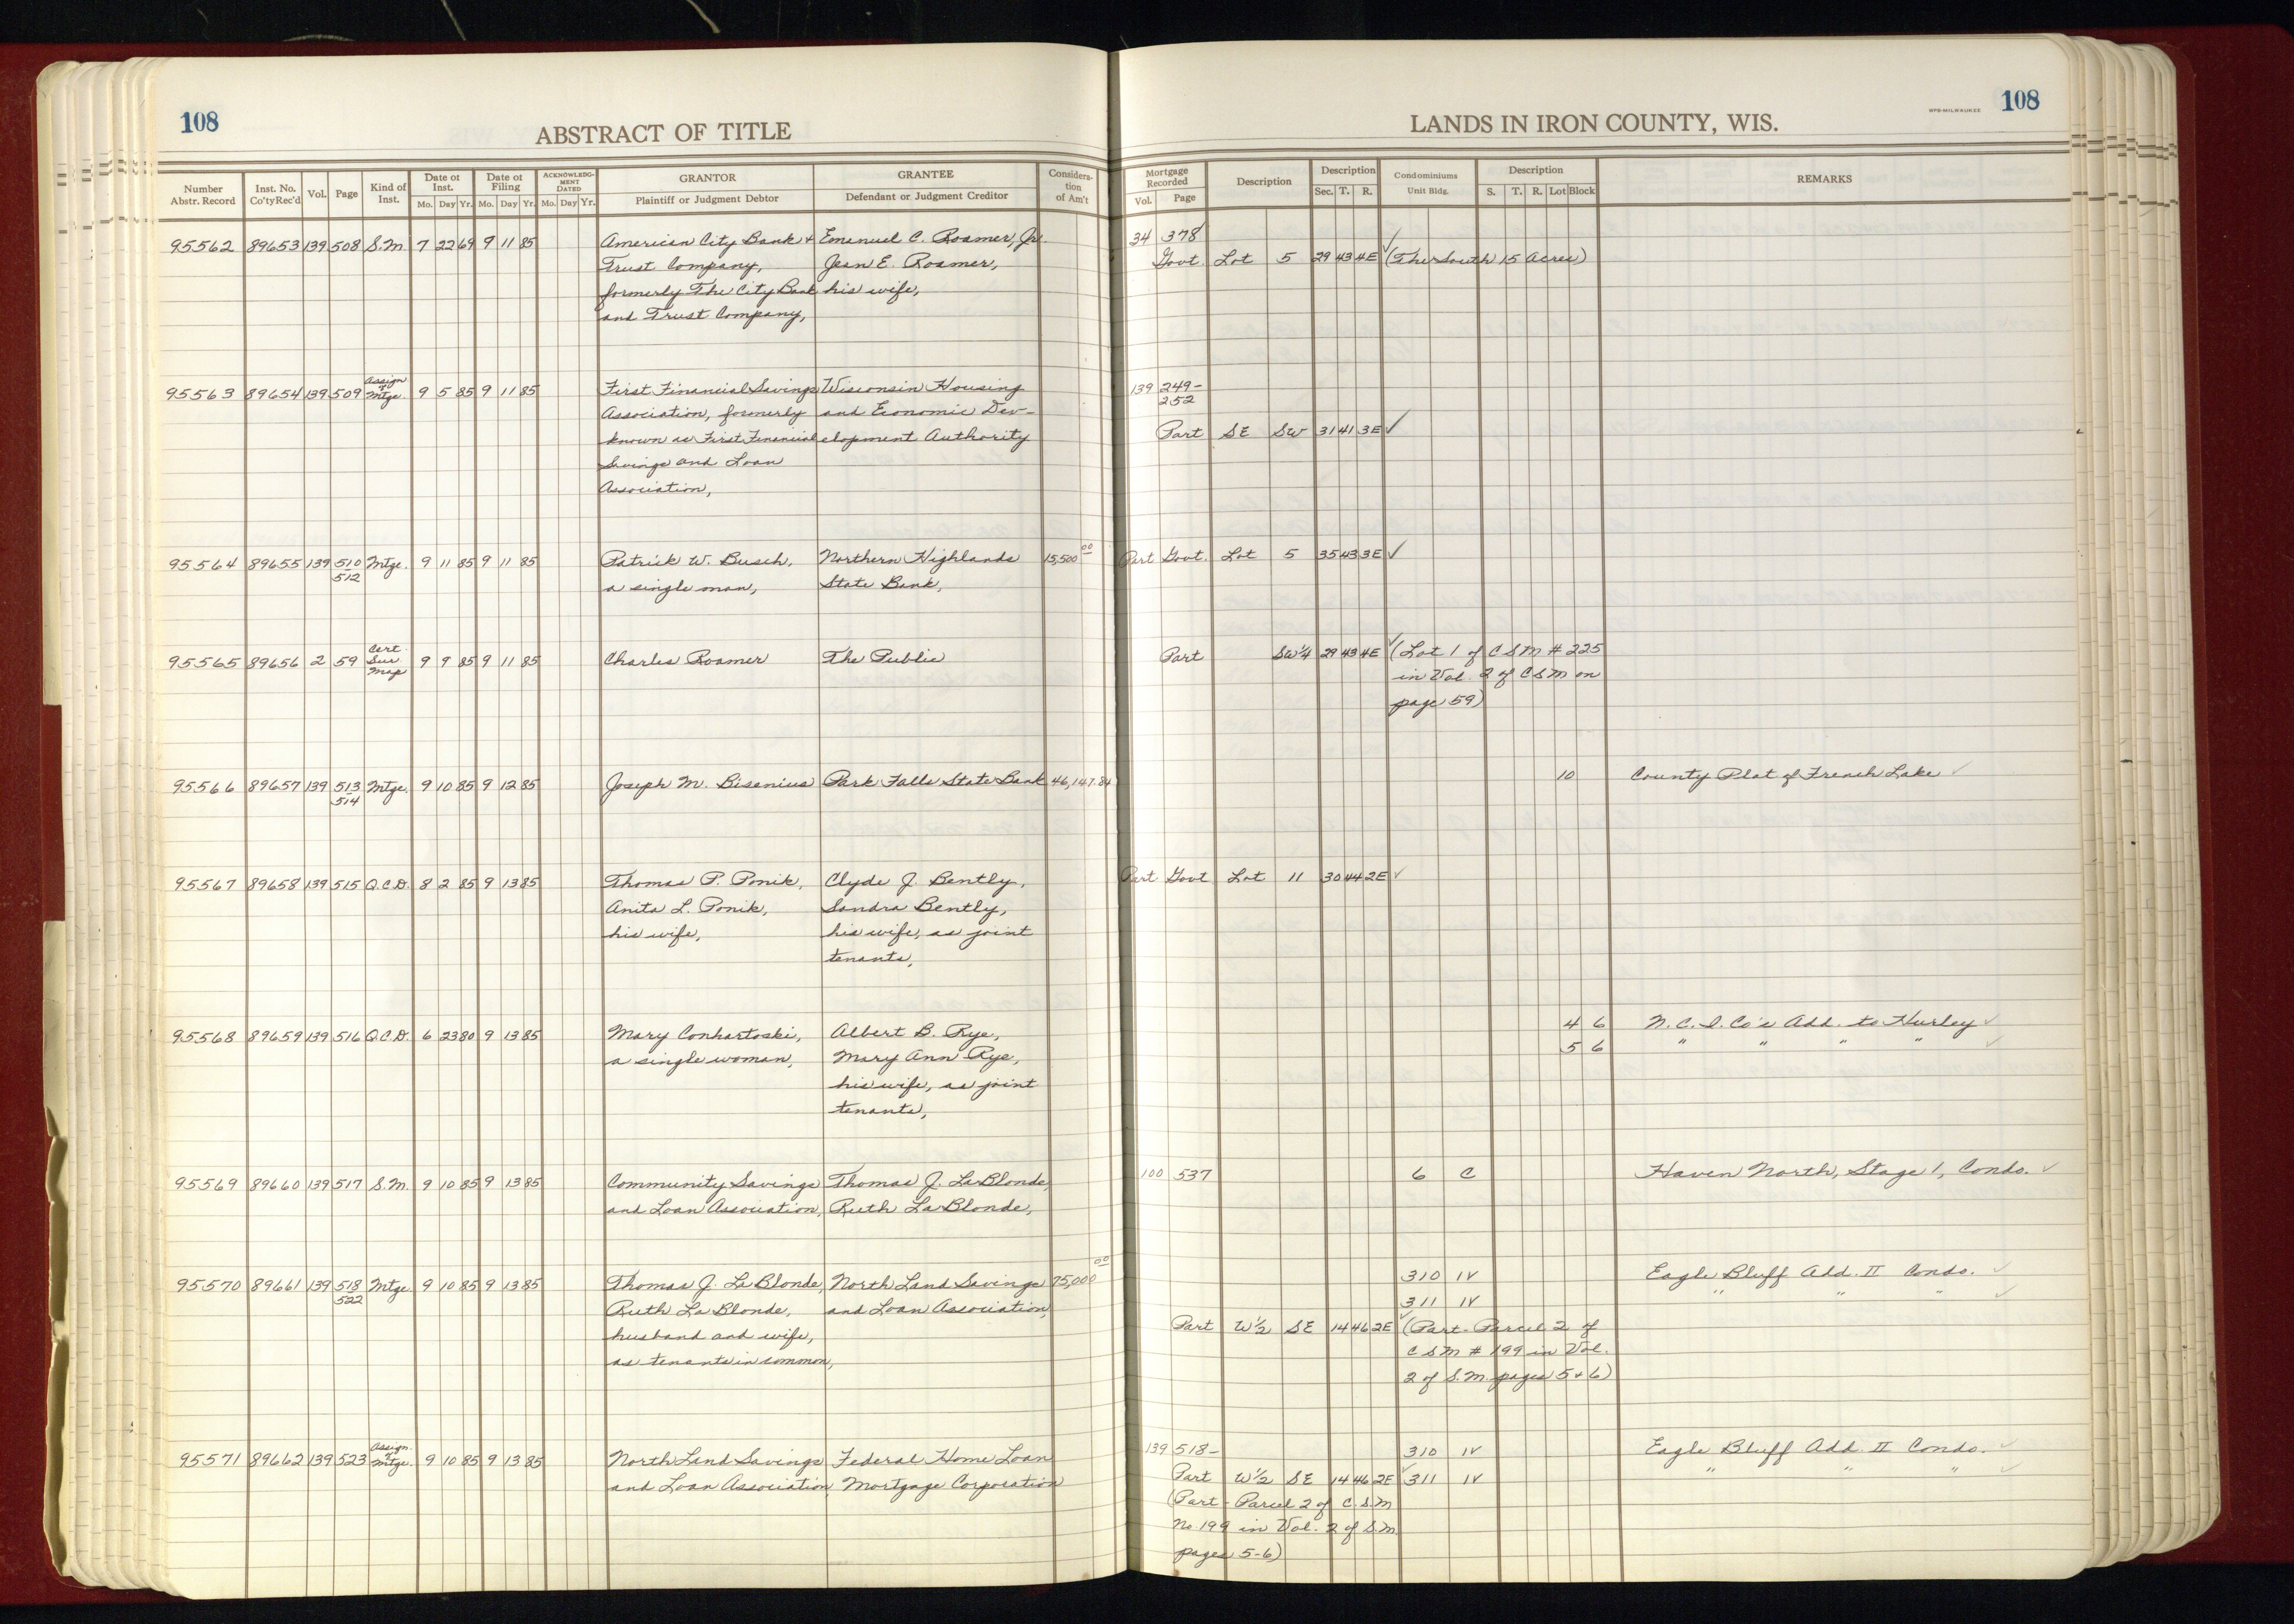 108
ABSTRACT OF TITLE
LANDS IN IRON COUNTY, WIS.
WPB-MILWAUKEE
108
Number Abstr. Record Inst. No. Co'tyRec'd Vol. Page Kind of Inst. Date of Inst. Mo. Day Yr. Date of Filing Mo. Day Yr. ACKNOWLEDG-MENT DATED Mo. Day Yr. GRANTOR Plaintiff or Judgment Debtor GRANTEE Defendant or Judgment Creditor Considera-tion of Am't Mortgage Recorded Vol. Page Description Description Sec. T. R. Condominiums Unit Bldg. Description S. T. R. Lot Block REMARKS
95562 89653 139 508 S.M. 7 22 69 9 11 85 American City Bank & Emanuel C. Roamer, Jr. 34 378
Trust Company, Jean E. Roamer, Govt. Lot 5 29 43 4E ✓ (The South 15 Acres)
formerly The City Bank his wife,
and Trust Company,
95563 89654 139 509 Assign of Mtge. 9 5 85 9 11 85 First Financial Savings Wisconsin Housing 139 249-
Association, formerly and Economic Dev- 252
known as First Financial elopment Authority Part SE SW 31 41 3E ✓
Savings and Loan
Association,
95564 89655 139 510 Mtge. 9 11 85 9 11 85 Patrick W. Busch, Northern Highlands 15,500 00 Part Govt. Lot 5 35 43 3E ✓
512 a single man, State Bank,
95565 89656 2 59 Cert. Sur. Map 9 9 85 9 11 85 Charles Roamer The Public Part SW¼ 29 43 4E ✓ (Lot 1 of CSM # 225
in Vol. 2 of CSM on
page 59)
95566 89657 139 513 Mtge. 9 10 85 9 12 85 Joseph M. Bisenius Park Falls State Bank 46,147.84 10 County Plat of French Lake ✓
514
95567 89658 139 515 Q.C.D. 8 2 85 9 13 85 Thomas P. Ponik, Clyde J. Bently, Part Govt Lot 11 30 44 2E ✓
Anita L. Ponik, Sandra Bently,
his wife, his wife, as joint
tenants,
95568 89659 139 516 Q.C.D. 6 23 80 9 13 85 Mary Conhartoski, Albert B. Rye, 4 6 N.C.I. Co's Add. to Hurley ✓
a single woman, Mary Ann Rye, 5 6 " " " " ✓
his wife, as joint
tenants,
95569 89660 139 517 S.M. 9 10 85 9 13 85 Community Savings Thomas J. LaBlonde, 100 537 6 C Haven North, Stage 1, Condo. ✓
and Loan Association, Ruth LaBlonde,
95570 89661 139 518 Mtge 9 10 85 9 13 85 Thomas J. LaBlonde, North Land Savings 75,000 00 310 IV Eagle Bluff Add. II Condo. ✓
522 Ruth LaBlonde, and Loan Association, 311 IV " " " ✓
husband and wife, Part W½ SE 14 46 2E ✓ (Part-Parcel 2 of
as tenants in common, CSM # 199 in Vol.
2 of S.M. pages 5 & 6)
95571 89662 139 523 Assign. of Mtge. 9 10 85 9 13 85 North Land Savings Federal Home Loan 139 518- 310 IV Eagle Bluff Add. II Condo. ✓
and Loan Association, Mortgage Corporation Part W½ SE 14 46 2E ✓ 311 IV " " " ✓
(Part-Parcel 2 of C.S.M
No 199 in Vol. 2 of S.M.
pages 5-6)